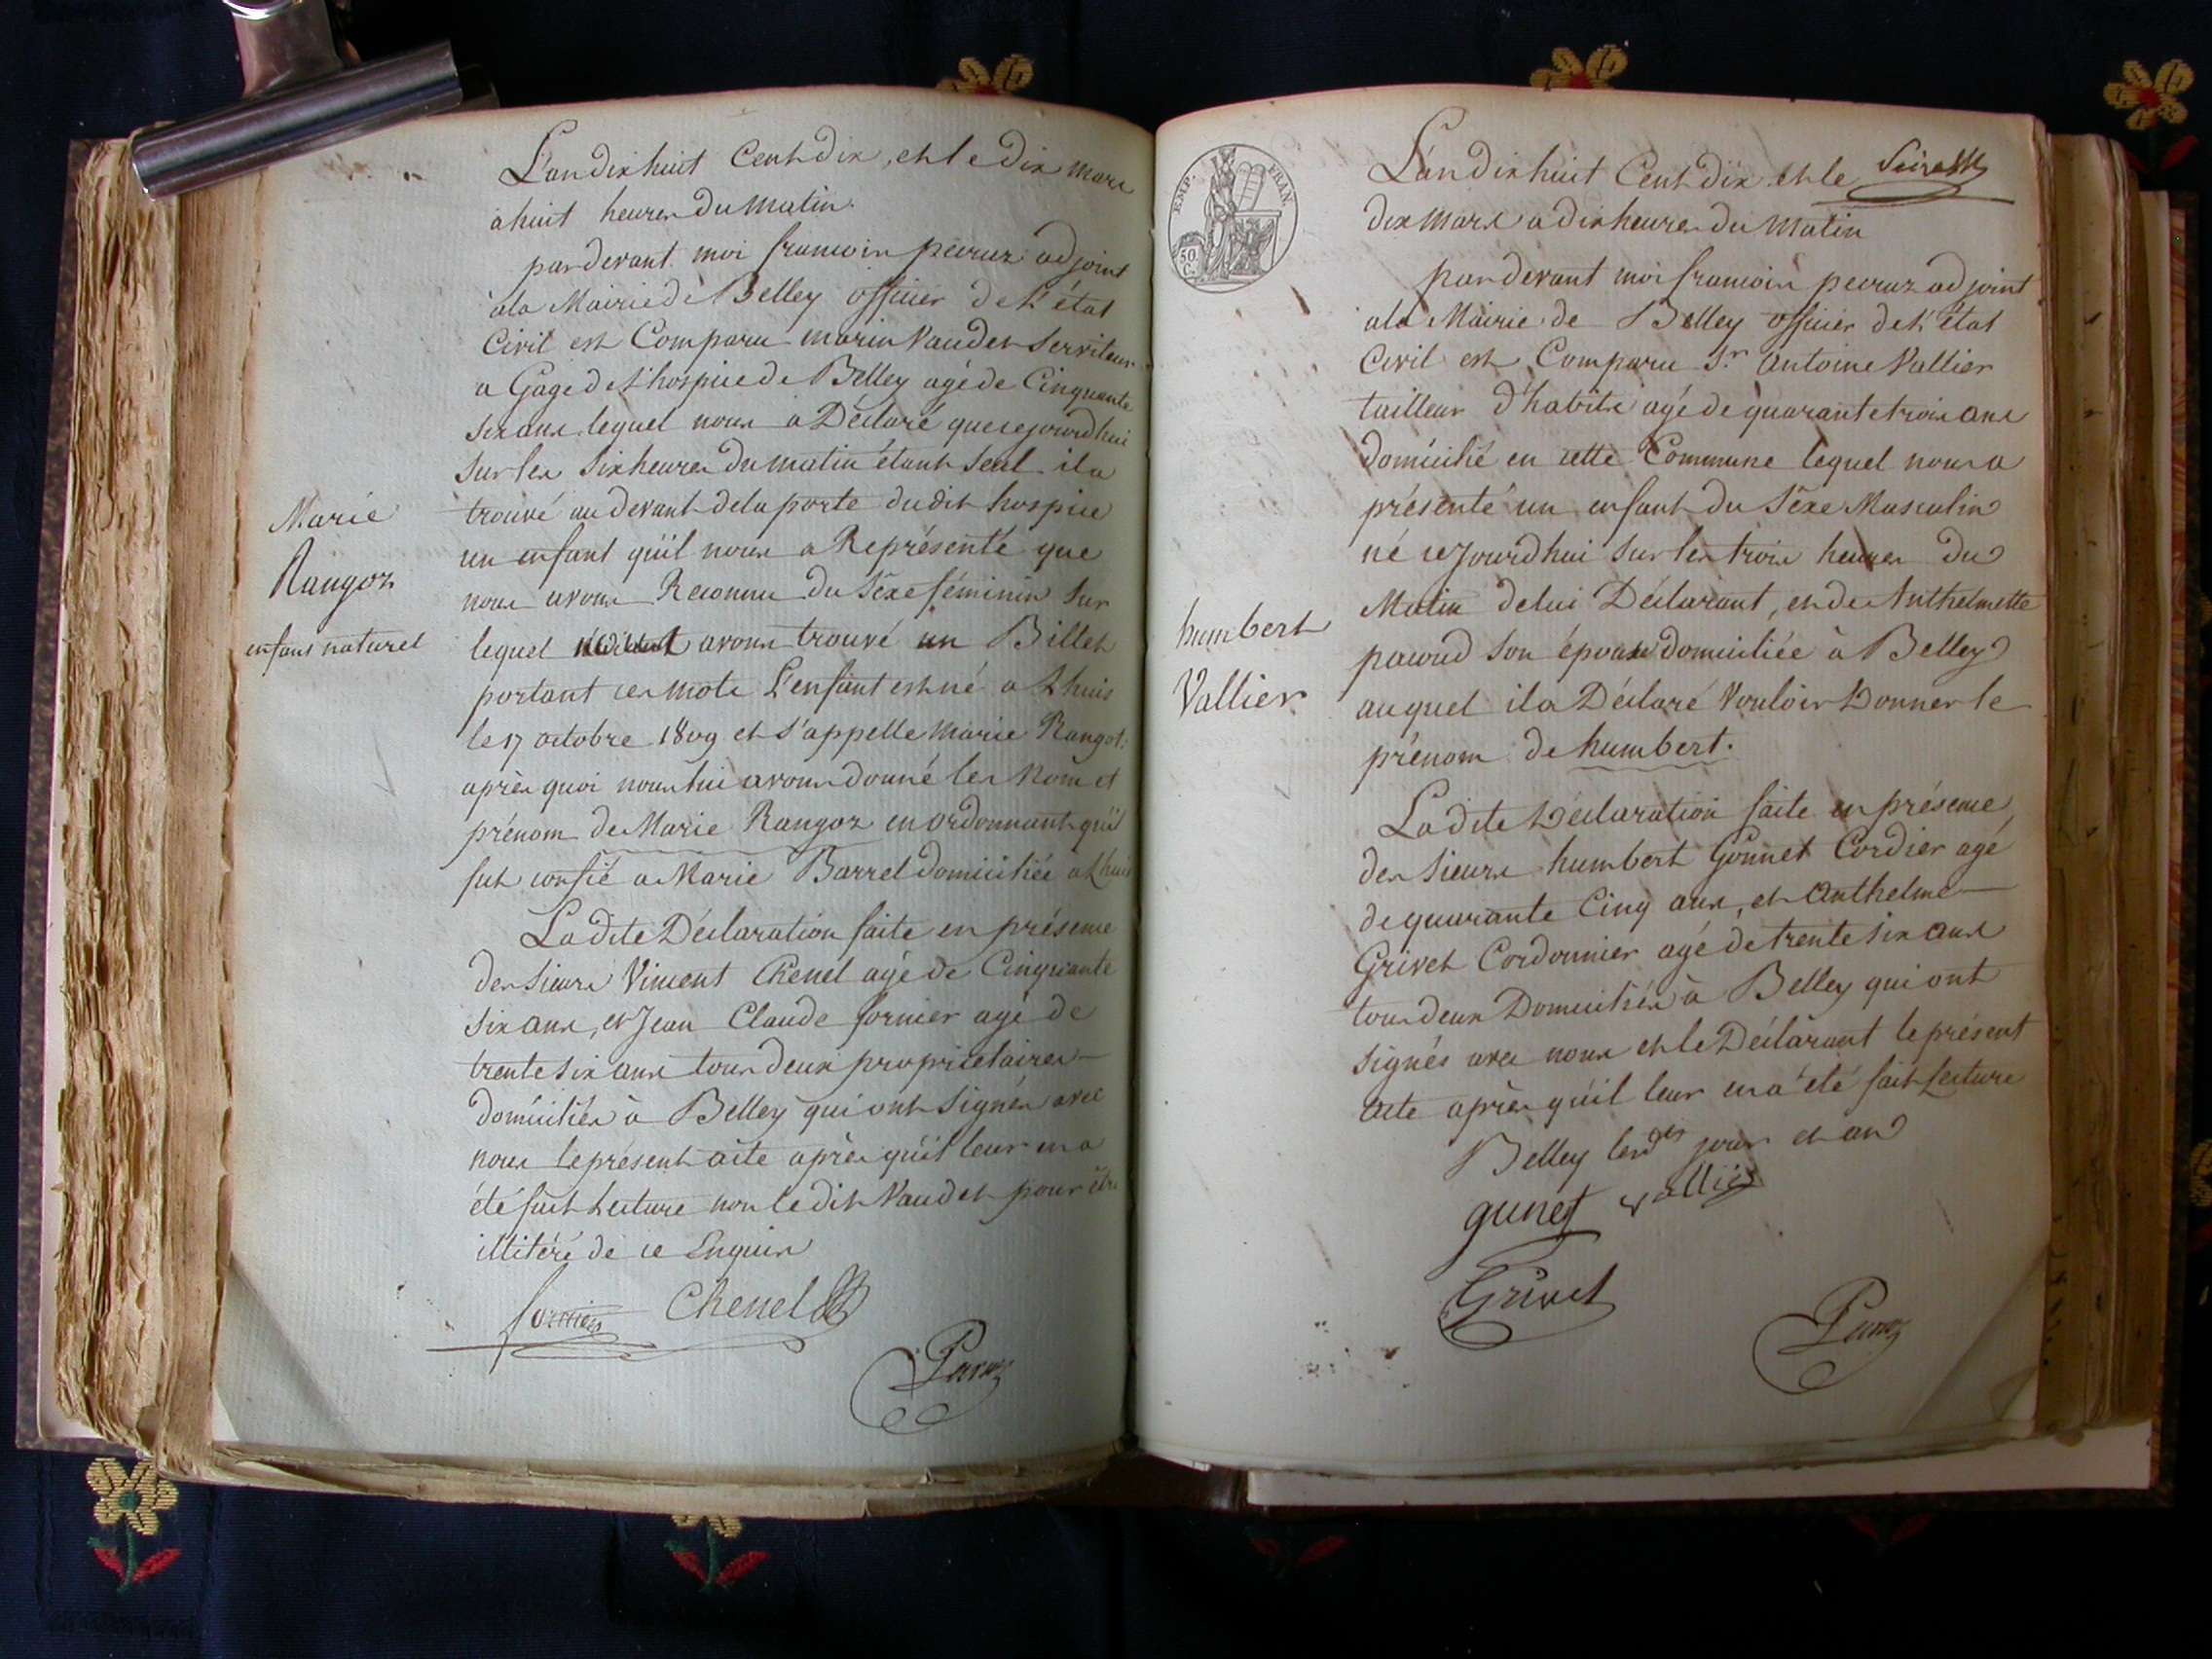 L'an dix huit Cent dix, et le dix mars
a huit heures du matin.
pardevant moi francois peyruz adjoint
à la Mairie de Belley officier de l'état
Civil est Comparu marin Vaudet Serviteur
a Gage de l'hospice de Belley agé de Cinquante
six ans lequel nous a Déclaré que cejourd'hui
sur les six heures du matin étant seul il a
trouvé au devant de la porte dudit hospice
un enfant qu'il nous a Représenté que
nous avons Reconnu du Sexe féminin sur
lequel avons trouvé un Billet
portant ces mots L'enfant est né a Lhuis
le 17 octobre 1809 et s'appelle marie Rangot:
après quoi nous lui avons donné les Nom et
prénom de Marie Rangoz en ordonnant qu'il
fut confié a Marie Barret domiciliée a Lhuis
La dite Déclaration faite en présence
des sieurs Vincent Chenel agé de Cinquante
six ans, et Jean Claude fornier agé de
trente six ans tous deux propriétaires
domiciliés à Belley qui ont signés avec
nous le présent acte après qu'il leur en a
été fait Lecture non le dit Vaudet pour être
illitéré de ce Enquis
fornier Chenel
Marie
Rangoz
enfant naturel
EMP. FRAN.
50 C.
L'an dix huit Cent dix et le
dix mars a dix heures du Matin
pardevant moi francois peyruz adjoint
a la Mairie de Belley officier de l'état
Civil est Comparu S.r Antoine Vallier
tailleur d'habits agé de quarante trois ans
domicilié en cette Commune lequel nous a
présenté un enfant du Sexe Masculin
né cejourd'hui sur les trois heures du
Matin de lui Déclarant, et de Anthelmette
pacoud son épouse domiciliée à Belley
auquel il a Déclaré Vouloir Donner le
prénom de humbert.
La dite Déclaration faite en présence
des Sieurs humbert Gonnet Cordier agé
de quarante Cinq ans, et Anthelme
Grivet Cordonnier agé de trente six ans
tous deux Domiciliés à Belley qui ont
signés avec nous et le Déclarant le présent
acte après qu'il leur en a été fait Lecture
Belley les d.ts jour et an
gunet vallier
Grivet
humbert
Vallier